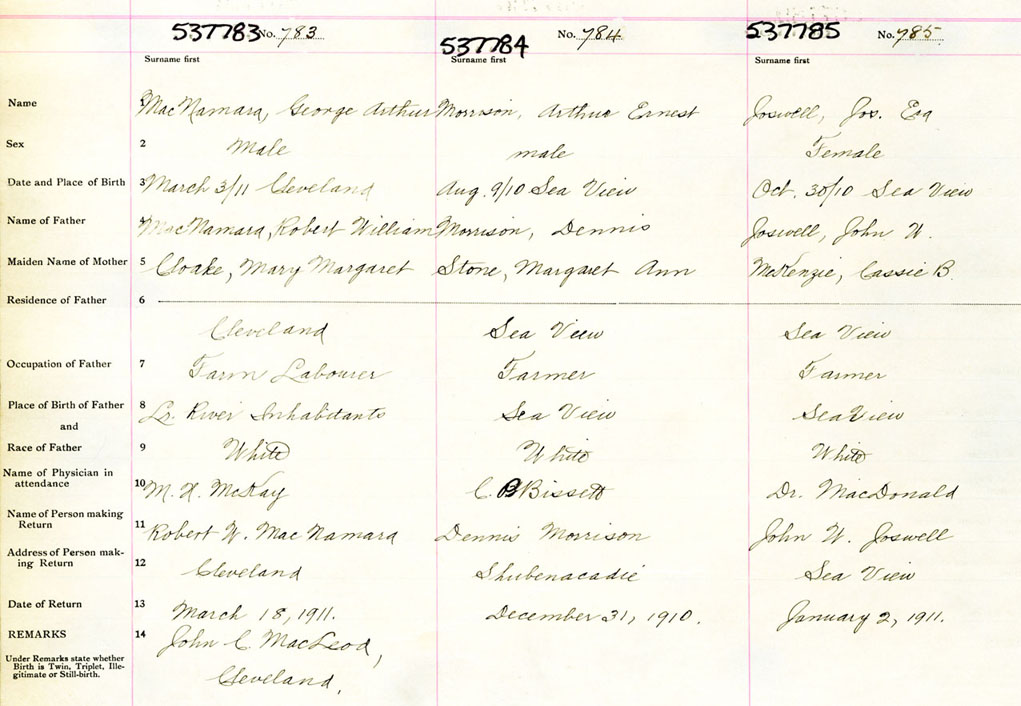 537783 No. 783 537784 No. 784 537785 No. 785
Surname first Surname first Surname first
Name 1 MacNamara, George Arthur Morrison, Arthur Ernest Joswell, Jos. Era
Sex 2 Male male Female
Date and Place of Birth 3 March 3/11 Cleveland Aug. 9/10 Sea View Oct. 30/10 Sea View
Name of Father 4 MacNamara, Robert William Morrison, Dennis Joswell, John W.
Maiden Name of Mother 5 Cloake, Mary Margaret Stone, Margaret Ann McKenzie, Cassie B.
Residence of Father 6
Cleveland Sea View Sea View
Occupation of Father 7 Farm Labourer Farmer Farmer
Place of Birth of Father 8 Lr. River Inhabitants Sea View Sea View
and
Race of Father 9 White White White
Name of Physician in
attendance 10 M. McKay C. B Bissett Dr. MacDonald
Name of Person making
Return 11 Robert W. MacNamara Dennis Morrison John W. Joswell
Address of Person mak-
ing Return 12 Cleveland Shubenacadie Sea View
Date of Return 13 March 18, 1911. December 31, 1910. January 2, 1911.
REMARKS 14 John C. MacLeod,
Under Remarks state whether
Birth is Twin, Triplet, Ille-
gitimate or Still-birth.
Cleveland,